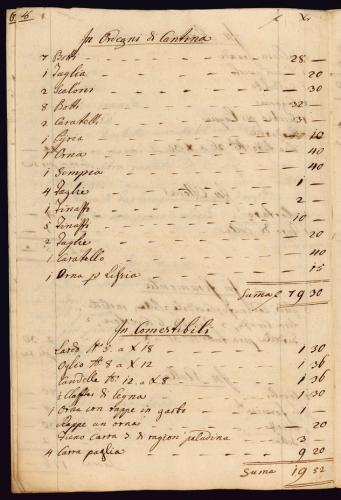 In Ordegni di Cantina
7 Botti — 28 —
1 Taglia — 20
2 — 30
8 Botti — 32 —
2 Caratelli
1 — 10
1 Orna — 40
1 Sempia — 40
4 Taglie — 1 —
1 Tinasso — 2 —
5 Tinassi — 10 —
2 Taglie — 20
1 Caratello — 40
1 Orna p Lissia — 15
Suma f 79 30
In Comestibili
Lardo 5. a X 18 1 30
Oglio 8 a X 12 1 36
Candelle 12. a X 8 1 36
di Legna 1 30
1 Orna con rappe in garbo 1 —
Rappe un orna — 20
Fieno Carra 3. di ragion 3 —
4 Carra paglia 9 20
Suma 19 52